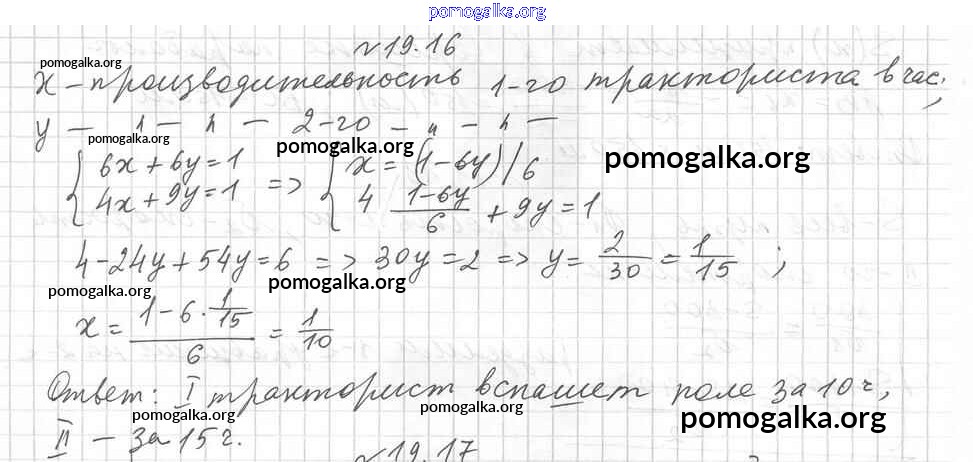 pomogalka.org
№19.16
pomogalka.org
x – производительность 1-го тракториста в час;
y — " — " — 2-го — " — " —
pomogalka.org
pomogalka.org
pomogalka.org
{ 6x + 6y = 1 => { x = (1-6y)/6
{ 4x + 9y = 1 { 4 (1-6y)/6 + 9y = 1
4 - 24y + 54y = 6 => 30y = 2 => y = 2/30 = 1/15 ;
pomogalka.org
pomogalka.org
x = (1 - 6 · 1/15)/6 = 1/10
Ответ: I тракторист вспашет поле за 10 ч,
pomogalka.org
pomogalka.org
pomogalka.org
II – за 15 ч.
№19.17